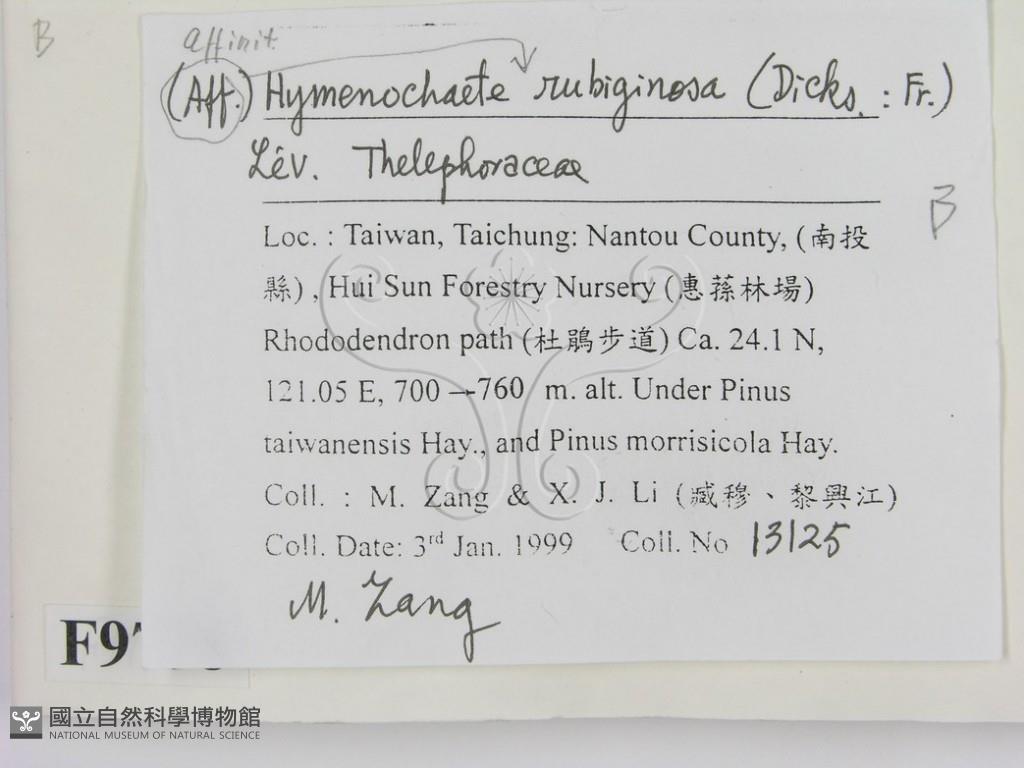 B
affinit.
(Aff.) Hymenochaete rubiginosa (Dicks. : Fr.)
Lév. Thelephoraceae
B
Loc. : Taiwan, Taichung: Nantou County, (南投
縣) , Hui Sun Forestry Nursery (惠蓀林場)
Rhododendron path (杜鵑步道) Ca. 24.1 N,
121.05 E, 700 —760 m. alt. Under Pinus
taiwanensis Hay., and Pinus morrisicola Hay.
Coll. : M. Zang & X. J. Li (臧穆、黎興江)
Coll. Date: 3rd Jan. 1999 Coll. No 13125
M. Zang
國立自然科學博物館
NATIONAL MUSEUM OF NATURAL SCIENCE